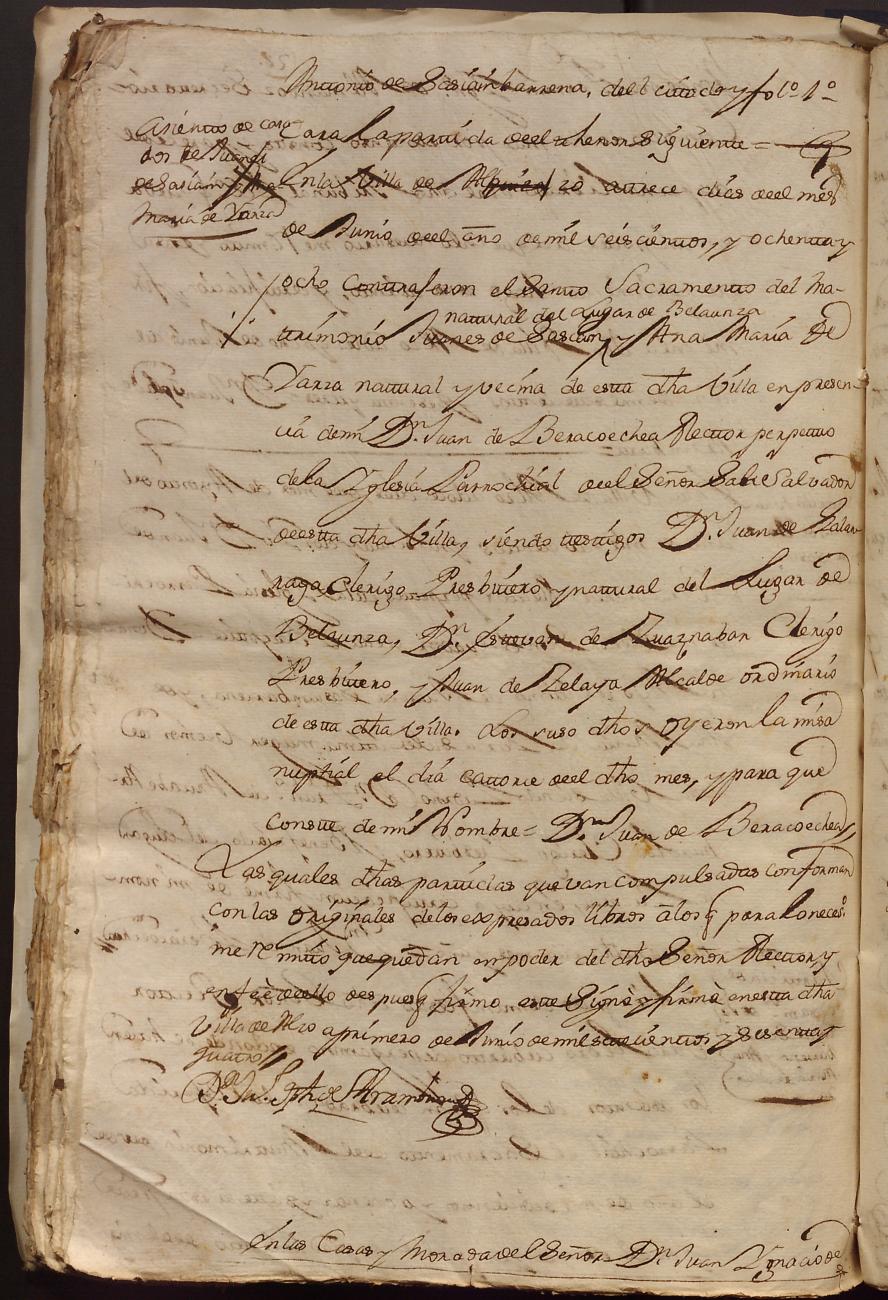 Anttonio de Sasiainbarrena, del citado, y folº 1º
Cara la partida de el thenor siguiente =
Asientto de casa-
dos de Juanes
de Sasiain y Ana
María de Yarza
En la Villa de Alzo a trece días de el mes
de Junio de el año de mil seiscientos, y ochenta y
ocho Contraferon el Santo Sacramento del Ma-
natural del Lugar de Belaunza
trimonio Juanes de Sasiain, y Ana María de
Yarza natural y vecina de esta dha Villa en presen-
cia de mi Dn. Juan de Beracoechea Rector perpetuo
de la Yglesia Parrochial de el Señor Salvador
de esta dha Villa, siendo testigos Dn. Juan de Galar-
raga Clerigo Presbitero y natural del Lugar de
Belaunza, Dn. Estevan de Zuaznabar Clerigo
Presbitero, y Juan de Zelaya Alcalde ordinario
de esta dha Villa. Los suso dhos oyeron la misa
nuptial el día catorce de el dho mes, y para que
conste de mi Nombre = Dn. Juan de Beracoechea
Las quales dhas partidas que van compulsadas conforman
con las originales de los expresados libros a los q para lo neces.
me remito que quedan en poder del dho Señor Rector, y
en fee de ello despues q firmo este Signè y firmè en esta dha
Villa de Alzo a primero de Junio de mil settecientos y sesenta y
quatro
Dn Joseph de Aramburu
En las Casas y Morada de el Señor Dn. Juan Ygnacio de